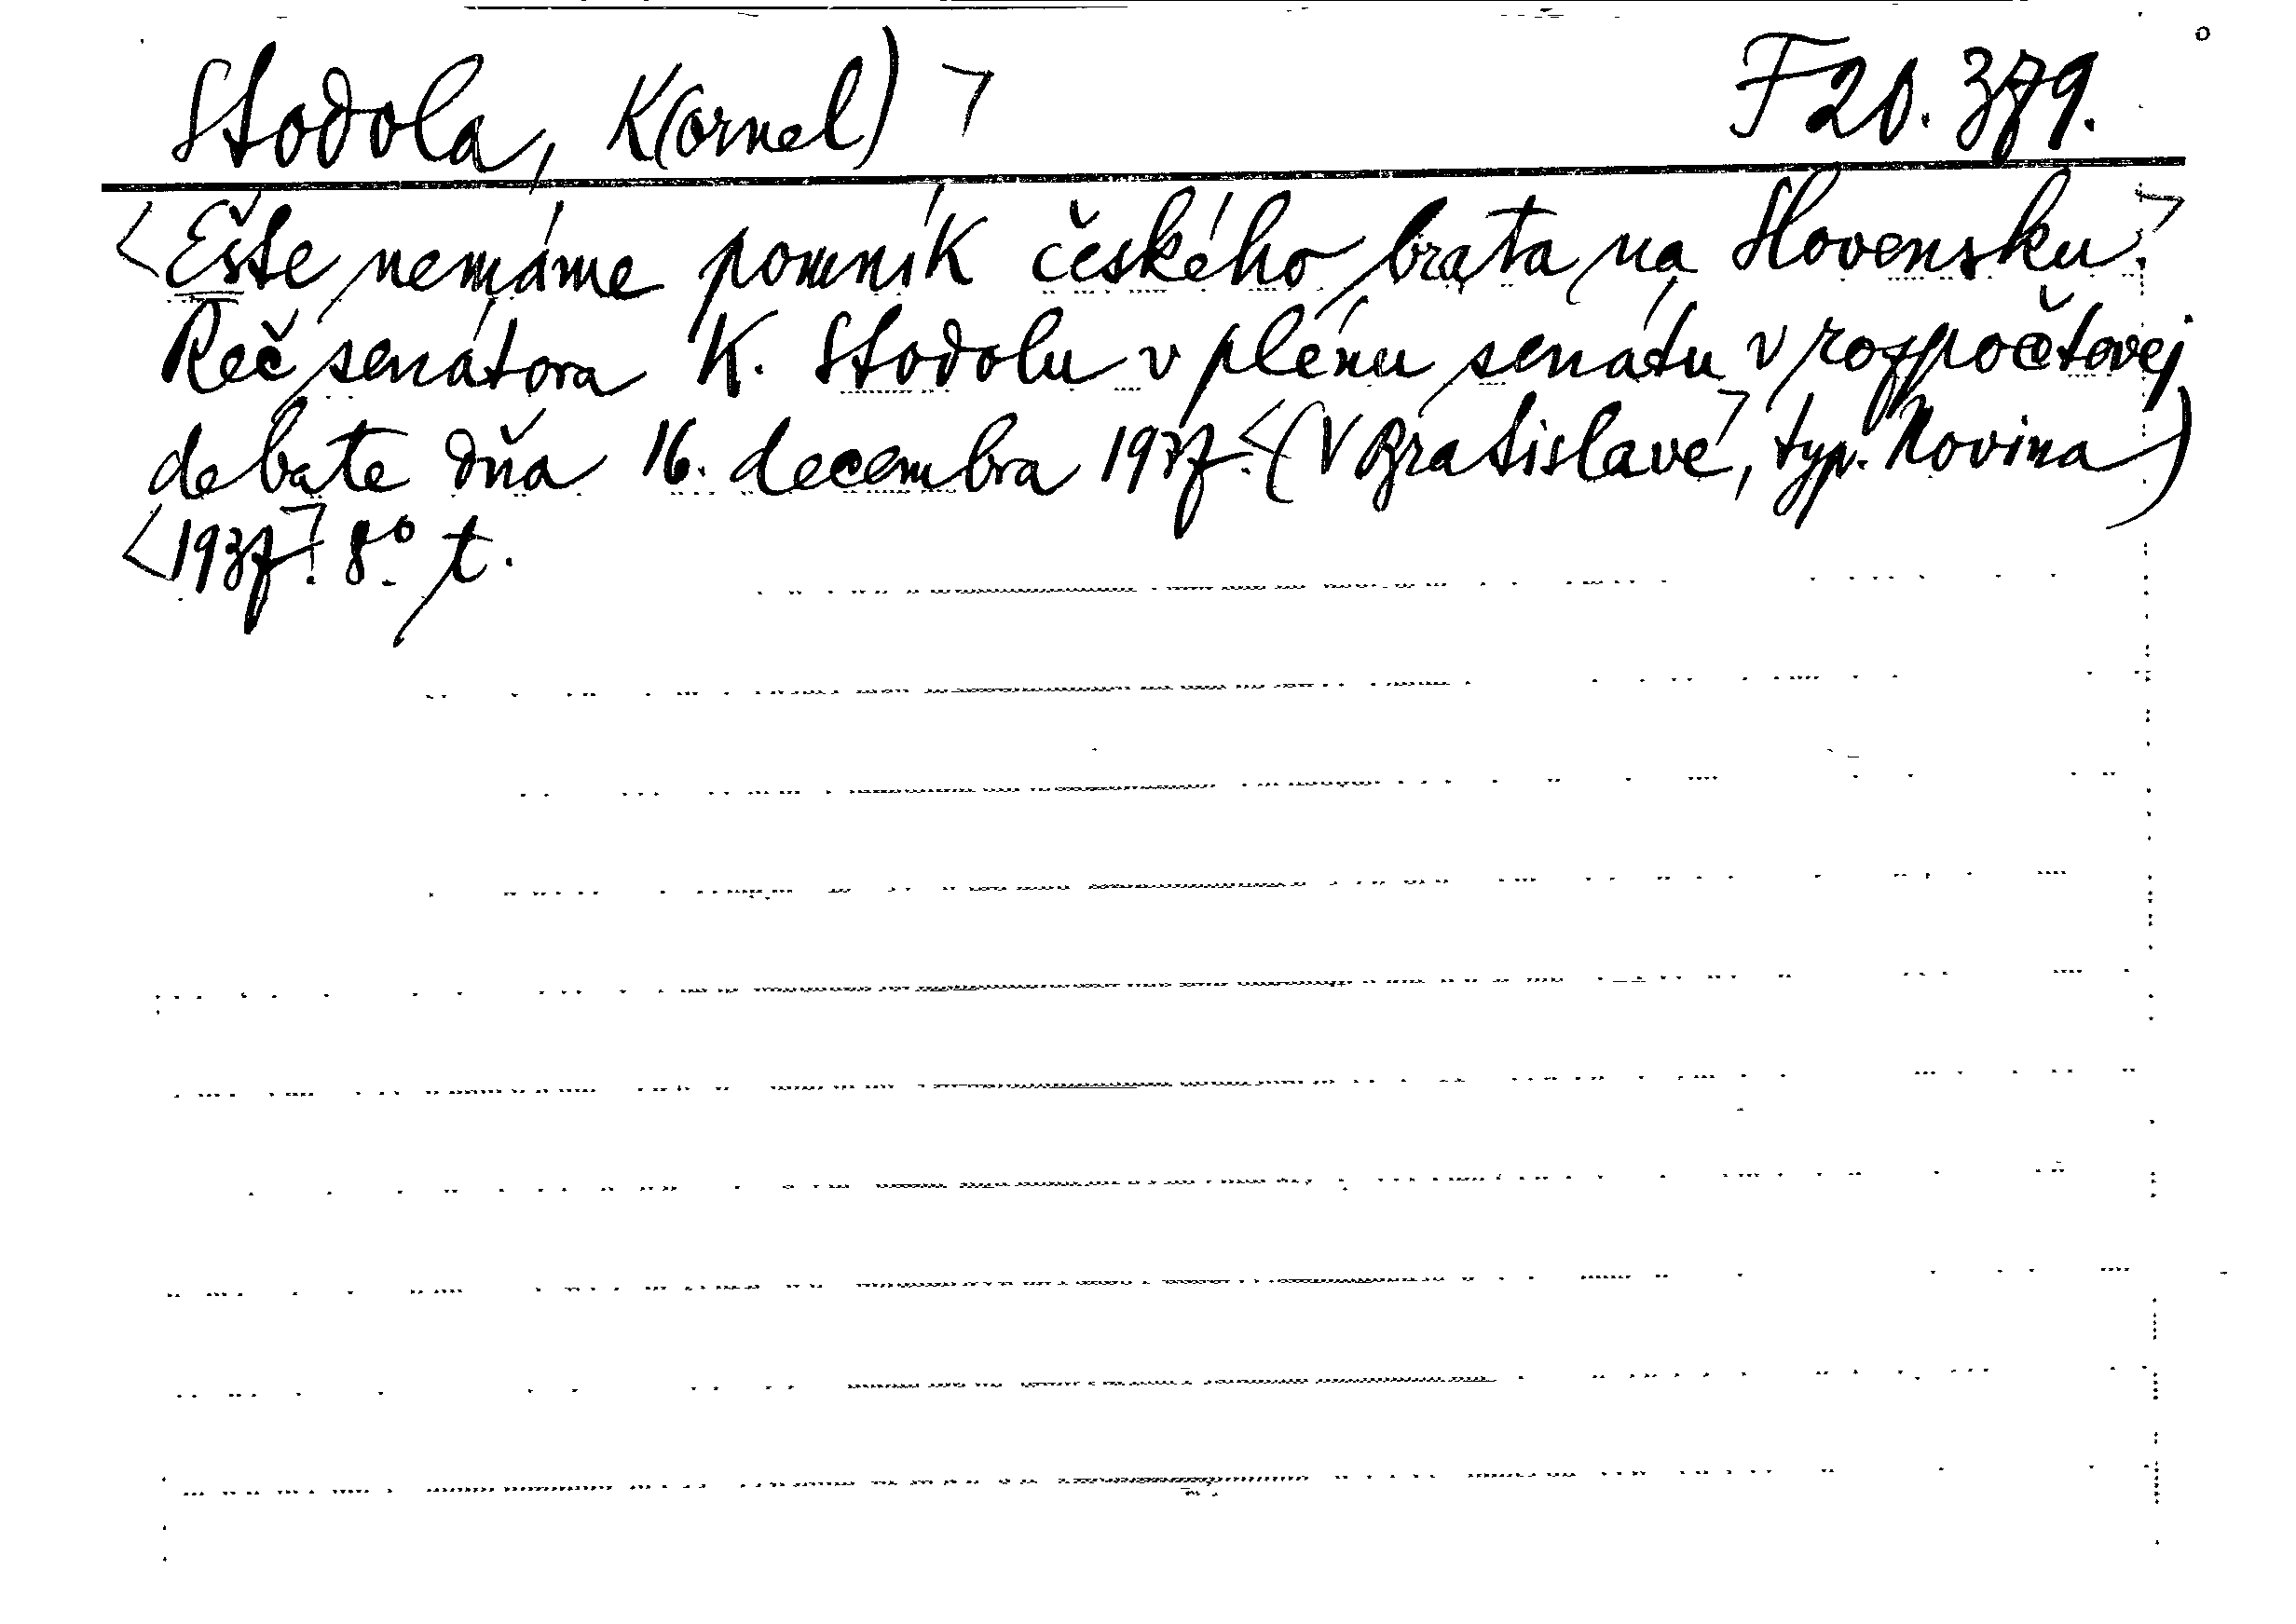 Stodola, K(ornel) ┐ F 20.379.
<Ešte nemáme pomník českého brata na Slovensku.┐
Reč senátora K. Stodolu v plénu senátu v rozpočtovej
debate dňa 16. decembra 1937.<(V Bratislave┐, typ. Novina)
<1937┐. 8° t.